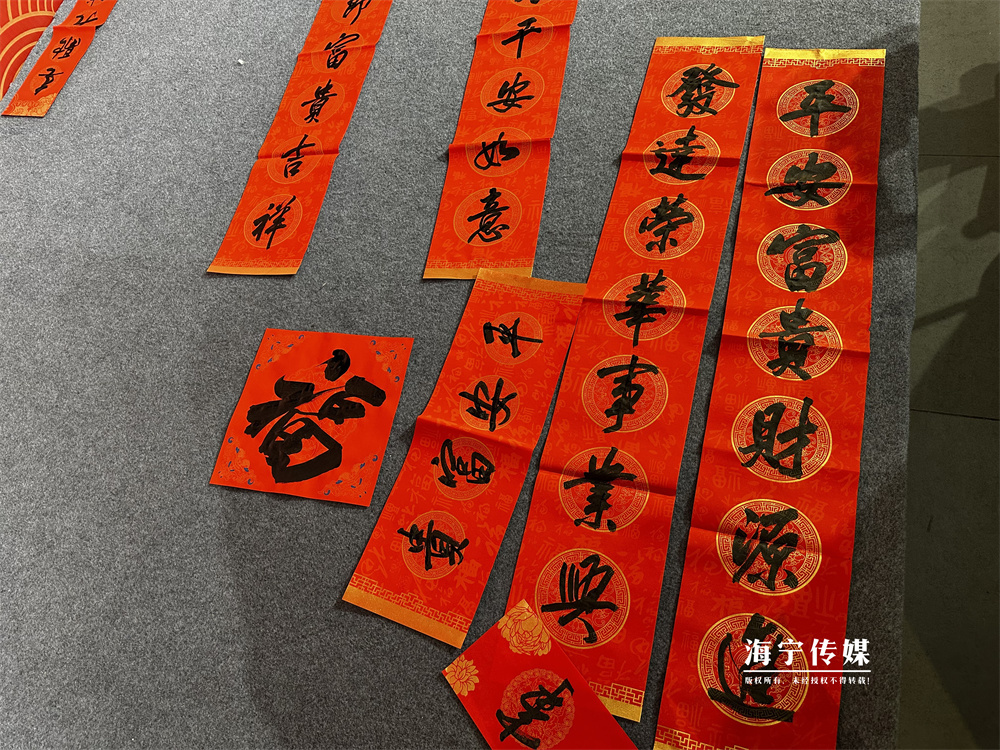 富貴吉祥
平安如意
發達榮華事業興
平安富貴財源進
平安富貴
福
海宁传媒
版权所有，未经授权不得转载！